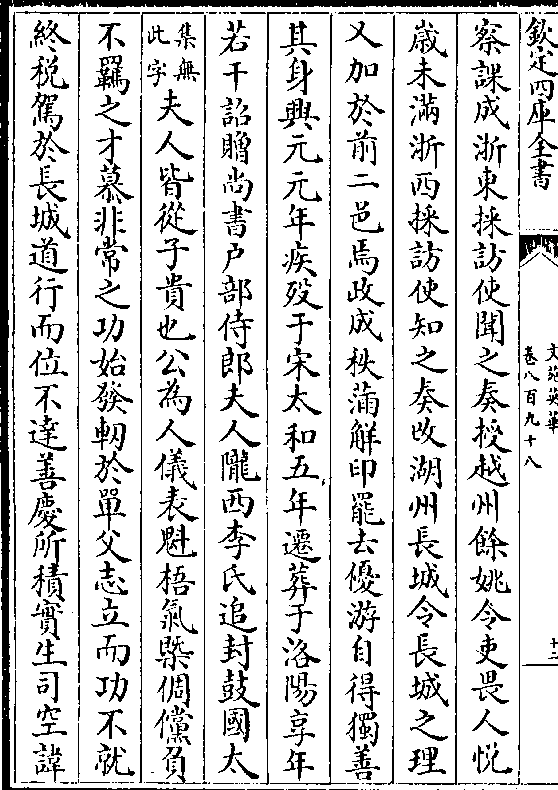 欽定四庫全書
文苑英華
卷八百九十八
十三
察課成浙東採訪使聞之奏授越州餘姚令吏畏人悅
歳未滿浙西採訪使知之奏改湖州長城令長城之理
又加於前二邑焉政成秩滿解印罷去優游自得獨善
其身興元元年疾殁于宋太和五年遷葬于洛陽享年
若干詔贈尚書户部侍郎夫人隴西李氏追封鼓國太
集無
此字
夫人皆從子貴也公為人儀表魁梧氣槩倜儻負
不羈之才慕非常之功始發軔於單父志立而功不就
終税駕於長城道行而位不達善慶所積實生司空諱